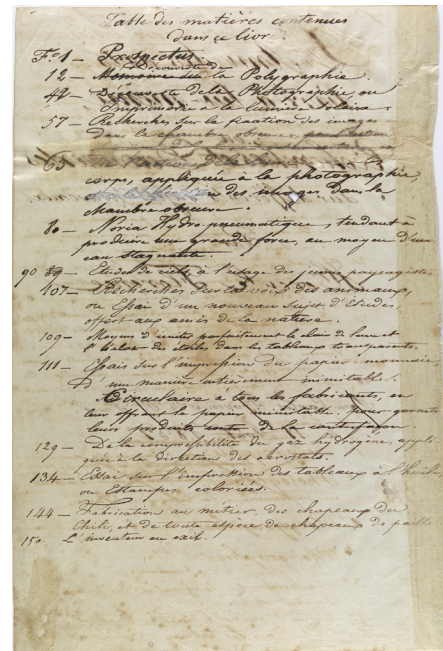 Table des matières contenues
dans ce livre.
F.o 1 — Prospectus
12 — Découverte de la Polygraphie.
42 — Découverte de la Photographie, ou
Imprimerie à la lumière solaire.
57 — Recherches sur la fixation des images
dans la chambre obscure, par l'action
de la lumière
63
corps, appliquée à la photographie,
des images dans la
Chambre obscure.
80 — Noria Hydro-pneumatique, tendant à
produire une grande force, au moyen d'une
eau stagnante.
90 — Etudes de ciels à l'usage des jeunes paysagistes
107 — Recherches sur la voix des animaux,
ou Essai d'un nouveau sujet d'Etudes,
offert aux amis de la nature
109 — Moyens d'imiter parfaitement le clair de lune et
l'éclat des étoiles dans les tableaux transparents.
111 — Essais sur l'impression du papier monnaie,
d'une manière entièrement inimitable.
Circulaire à tous les fabricants, en
leur offrant le papier inimitable, pour garantir
leurs produits contre de la contrefaçon.
129 — De la compressibilité du gaz hydrogène, appli
quée à la direction des aérostats.
134 — Essai sur l'impression des tableaux à l'huile,
ou Estampes coloriées.
144 — Fabrication au métier, des chapeaux du
Chili, et de toute espèce de chapeaux de paille
150. L'inventeur en exil.